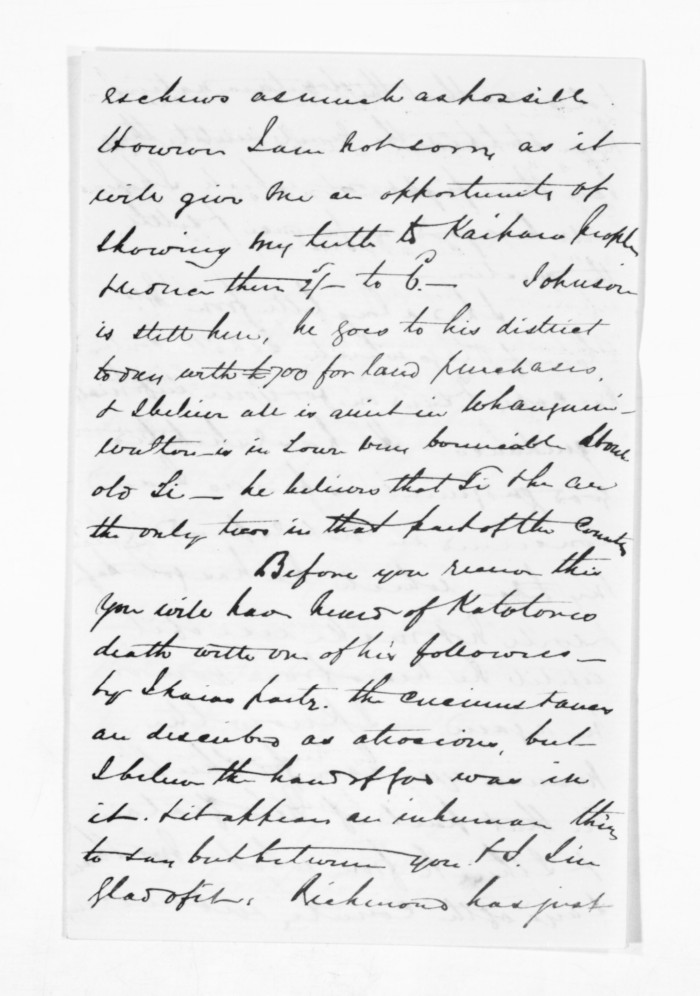 eschews as much as possible.
However I am not sorry, as it
will give me an opportunity of
showing my teeth to Kaipara People
them 2/- to £.— Johnson
is still here, he goes to his district
today with £700 for land purchases,
& I believe all is quiet in Whangarei—
Walton is in Town very about
old Ti — he believes that Ti & he are
the only two in that part of the Country
Before you receive this
you will have heard of Katatores
death with one of his followers —
by Ihaias party. the circumstances
are described as atrocious, but
I believe the hand of God was in
it. & it appears an inhuman thing
to say but between you & I. I'm
glad of it. Richmond has just